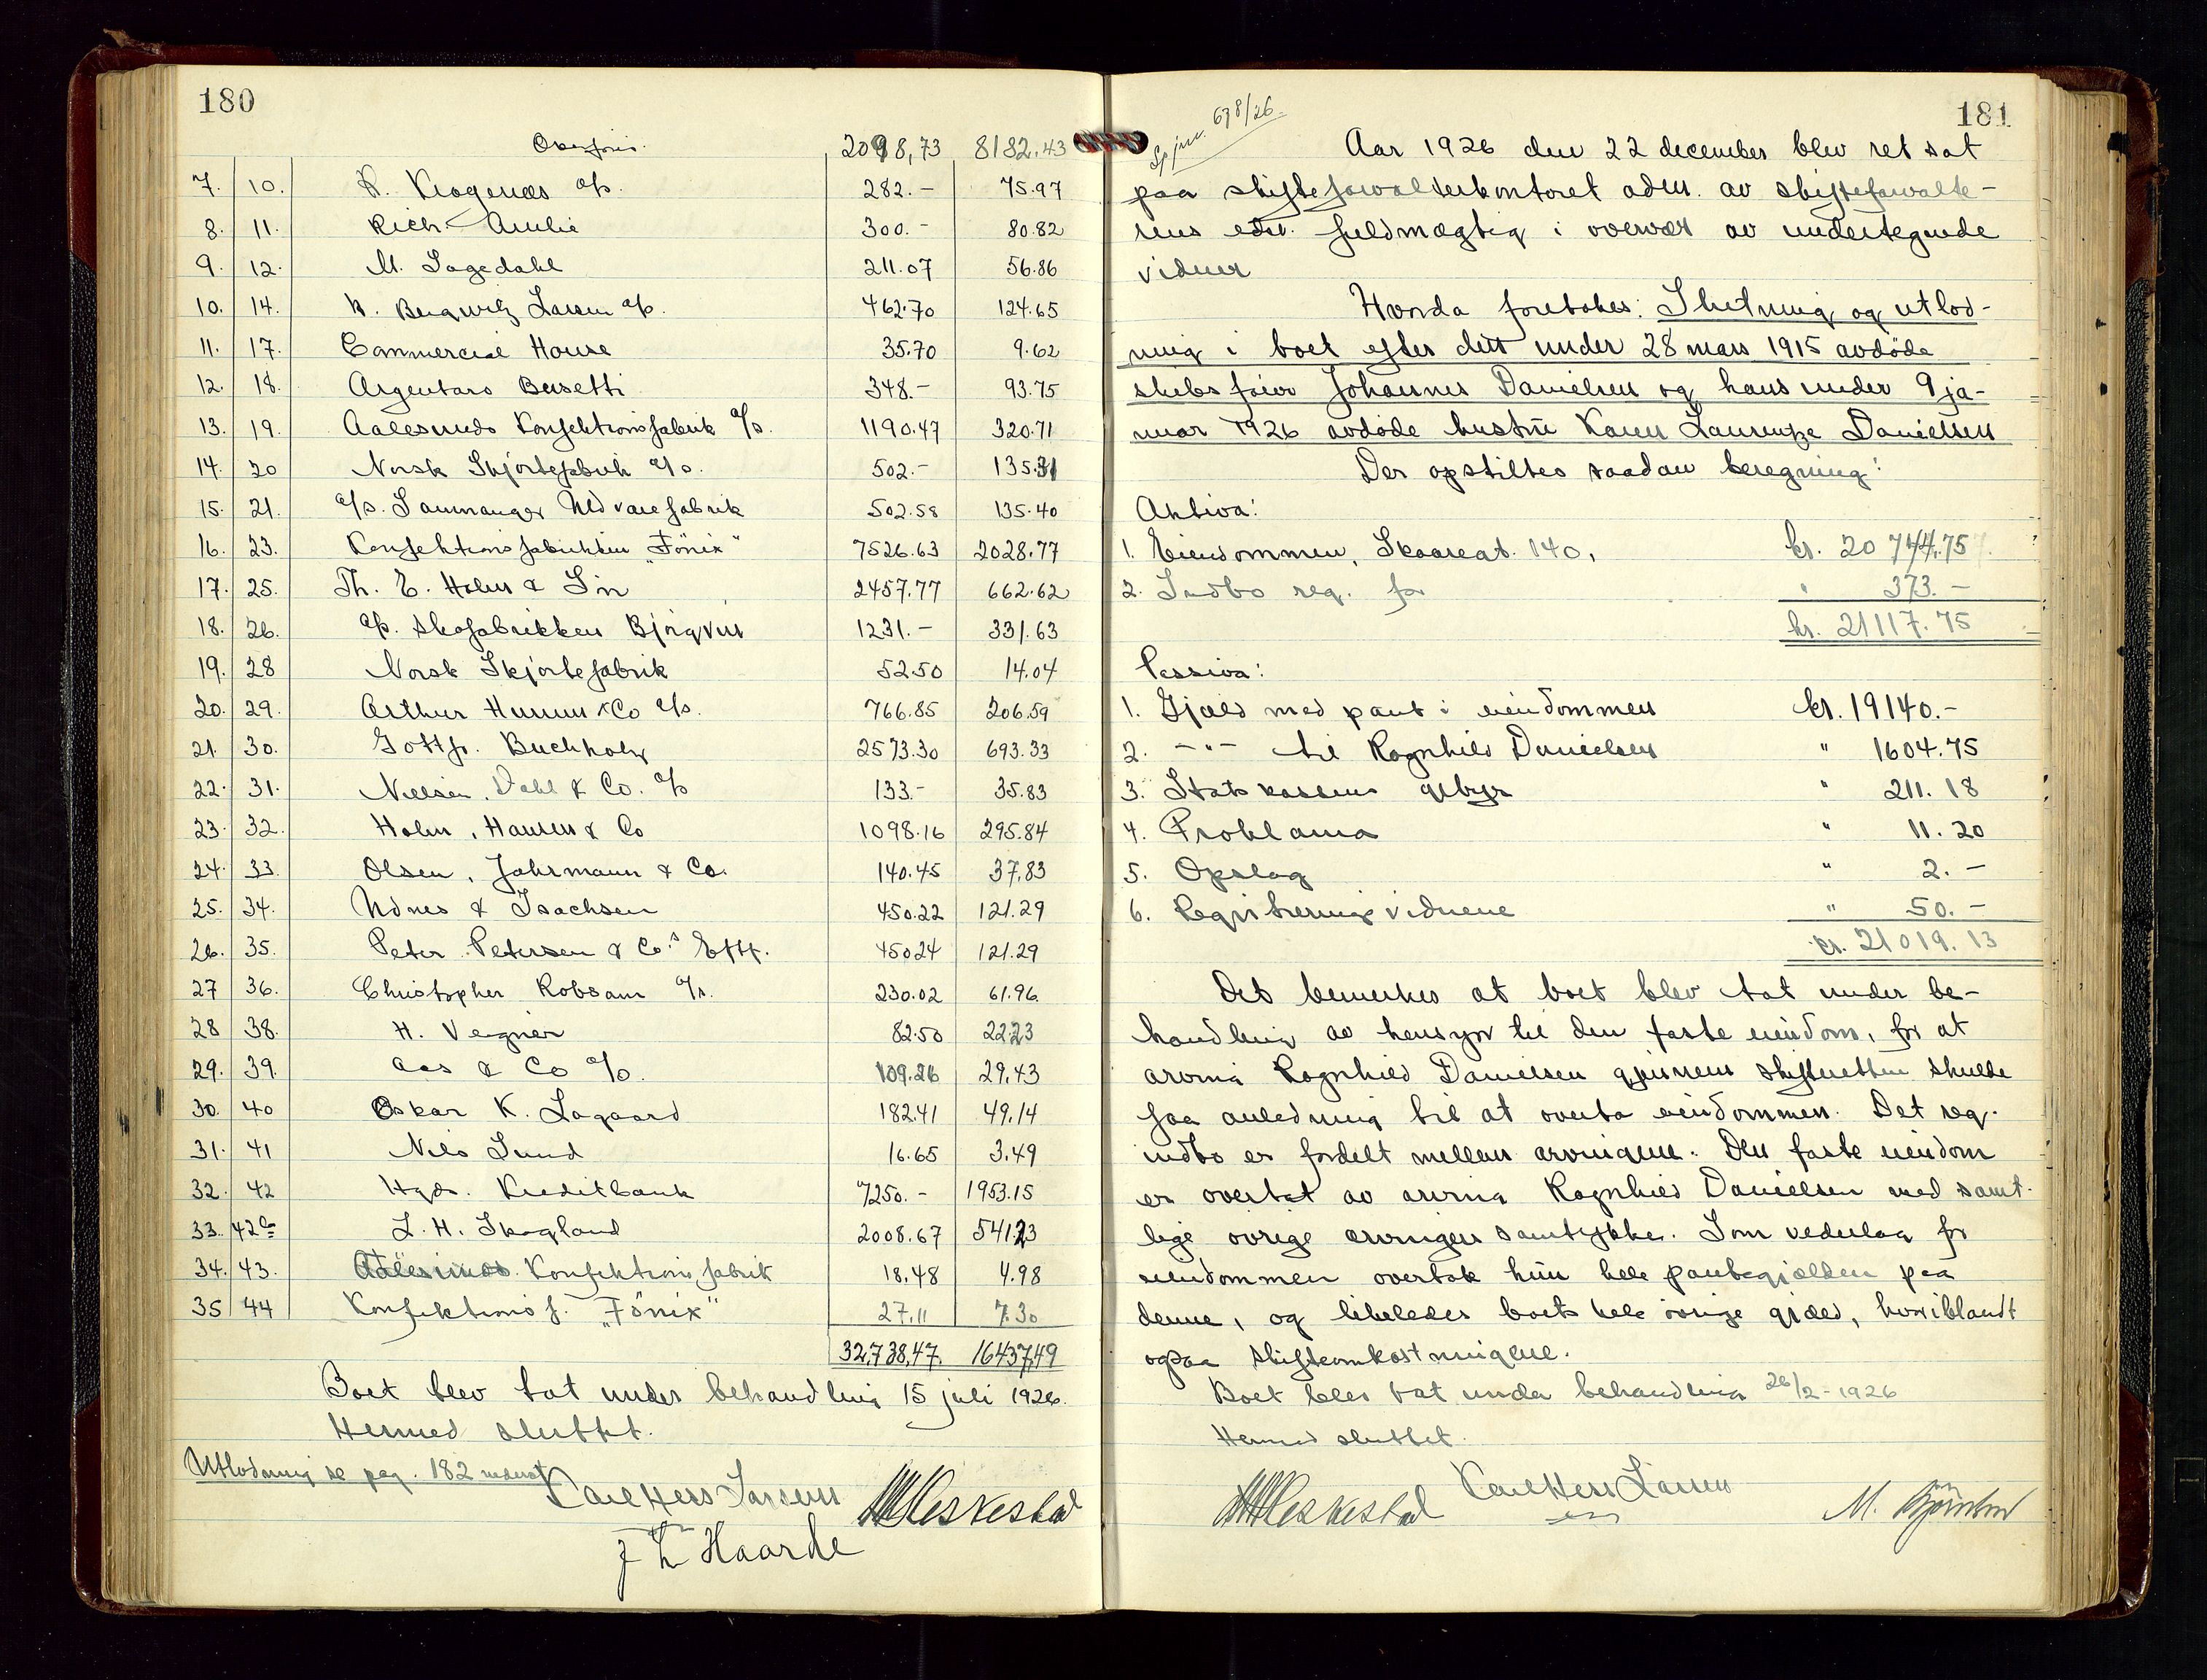 180
Overføris. 2098,73 8182.43
7. 10. K. Krogenæs A/s. 282.- 75.97
8. 11. Rich. Amlie 300.- 80.82
9. 12. M. Sagedahl 211.07 56.86
10. 14. Larsen A/s. 462.70 124.65
11. 17. Commercial House 35.70 9.62
12. 18. Argentaro Busetti 348.- 93.75
13. 19. Aalesunds Konfektionsfabrik A/s. 1190.47 320.71
14. 20 Norsk Skjortefabrik A/s. 502.- 135.31
15. 21. A/s. Samnanger Uldvarefabrik 502.58 135.40
16. 23. Konfektionsfabrikken "Fönix" 7526.63 2028.77
17. 25. Th. E. Holm & Sön 2457.77 662.62
18. 26. A/s. Skofabrikken Björgvin 1231.- 331.63
19. 28 Norsk Skjortefabrik 52.50 14.04
20. 29. Arthur & Co A/s. 766.85 206.59
21. 30. Gottfr. Buchholz 2573.30 693.33
22. 31. Nielsen, Dahl & Co. A/s 133.- 35.83
23. 32. Holm, Hansen & Co 1098.16 295.84
24. 33. Olsen, Jahrmann & Co. 140.45 37.83
25. 34. Udnes & Isachsen 450.22 121.29
26. 35. Peter Petersen & Co.s Eftf. 450.24 121.29
27 36. Christopher Robsam A/s. 230.02 61.96.
28 38. H. Vegner 82.50 22.23
29. 39. Aas & Co A/s. 109.26 29.43
30. 40 Oskar K. Lagaard 182.41 49.14
31. 41 Nils Lund 16.65 3.49
32. 42 Hgds. Kreditbank 7250.- 1953.15
33. 42a L. H. Skogland 2008.67 541.23
34. 43. Aalesunds Konfektionsfabrik 18.48 4.98
35 44 Konfektionsf. "Fönix" 27.11 7.30
32,738,47. 16437,49
Boet blev tat under behandling 15 juli 1926.
Hermed sluttet.
Utlodning se pag. 182 nederst
Carl Hess Larsen M Heskestad
Haarde
181
678/26
Aar 1926 den 22 december blev ret sat
paa skifteforvalterkontoret adm. av skifteforvalte-
rens edsv. fuldmægtig i overvær av undertegnede
vidner
Hvorda foretokes: Slutning og utlod-
ning i boet efter den under 28 mars 1915 avdöde
skibsförer Johannes Danielsen og hans under 9 ja-
nuar 1926 avdöde hustru Karen Laurentze Danielsen
Der opstilltes saadan beregning:
Aktiva:
1. Eiendommen, Skaaregt. 140, kr. 20 744.75
2. Indbo reg. for " 373.-
kr. 21117.75
Passiva:
1. Gjæld med pant i eiendommen kr. 19140.-
2. -"- til Ragnhild Danielsen " 1604.75
3. Statskassens gebyr " 211.18
4. Proklama " 11.20
5. Opslag " 2.-
6. Registreringsvidnene " 50.-
kr. 21019.13
Det bemerkes at boet blev tat under be-
handling av hensyn til den faste eiendom, for at
arving Ragnhild Danielsen gjennem skifteretten skulde
faa anledning til at overta eiendommen. Det reg.
indbo er fordelt mellem arvingene. Den faste eiendom
er overtat av arving Ragnhild Danielsen med samt-
lige övrige arvingers samtykke. Som vederlag for
eiendommen overtok hun hele pantegjælden paa
denne, og likeledes boets hele övrige gjæld, hvoriblandt
ogsaa skifteomkostningene.
Boet blev tat under behandling 26/2-1926
Hermed sluttet.
M Heskestad Carl Hess Larsen M.